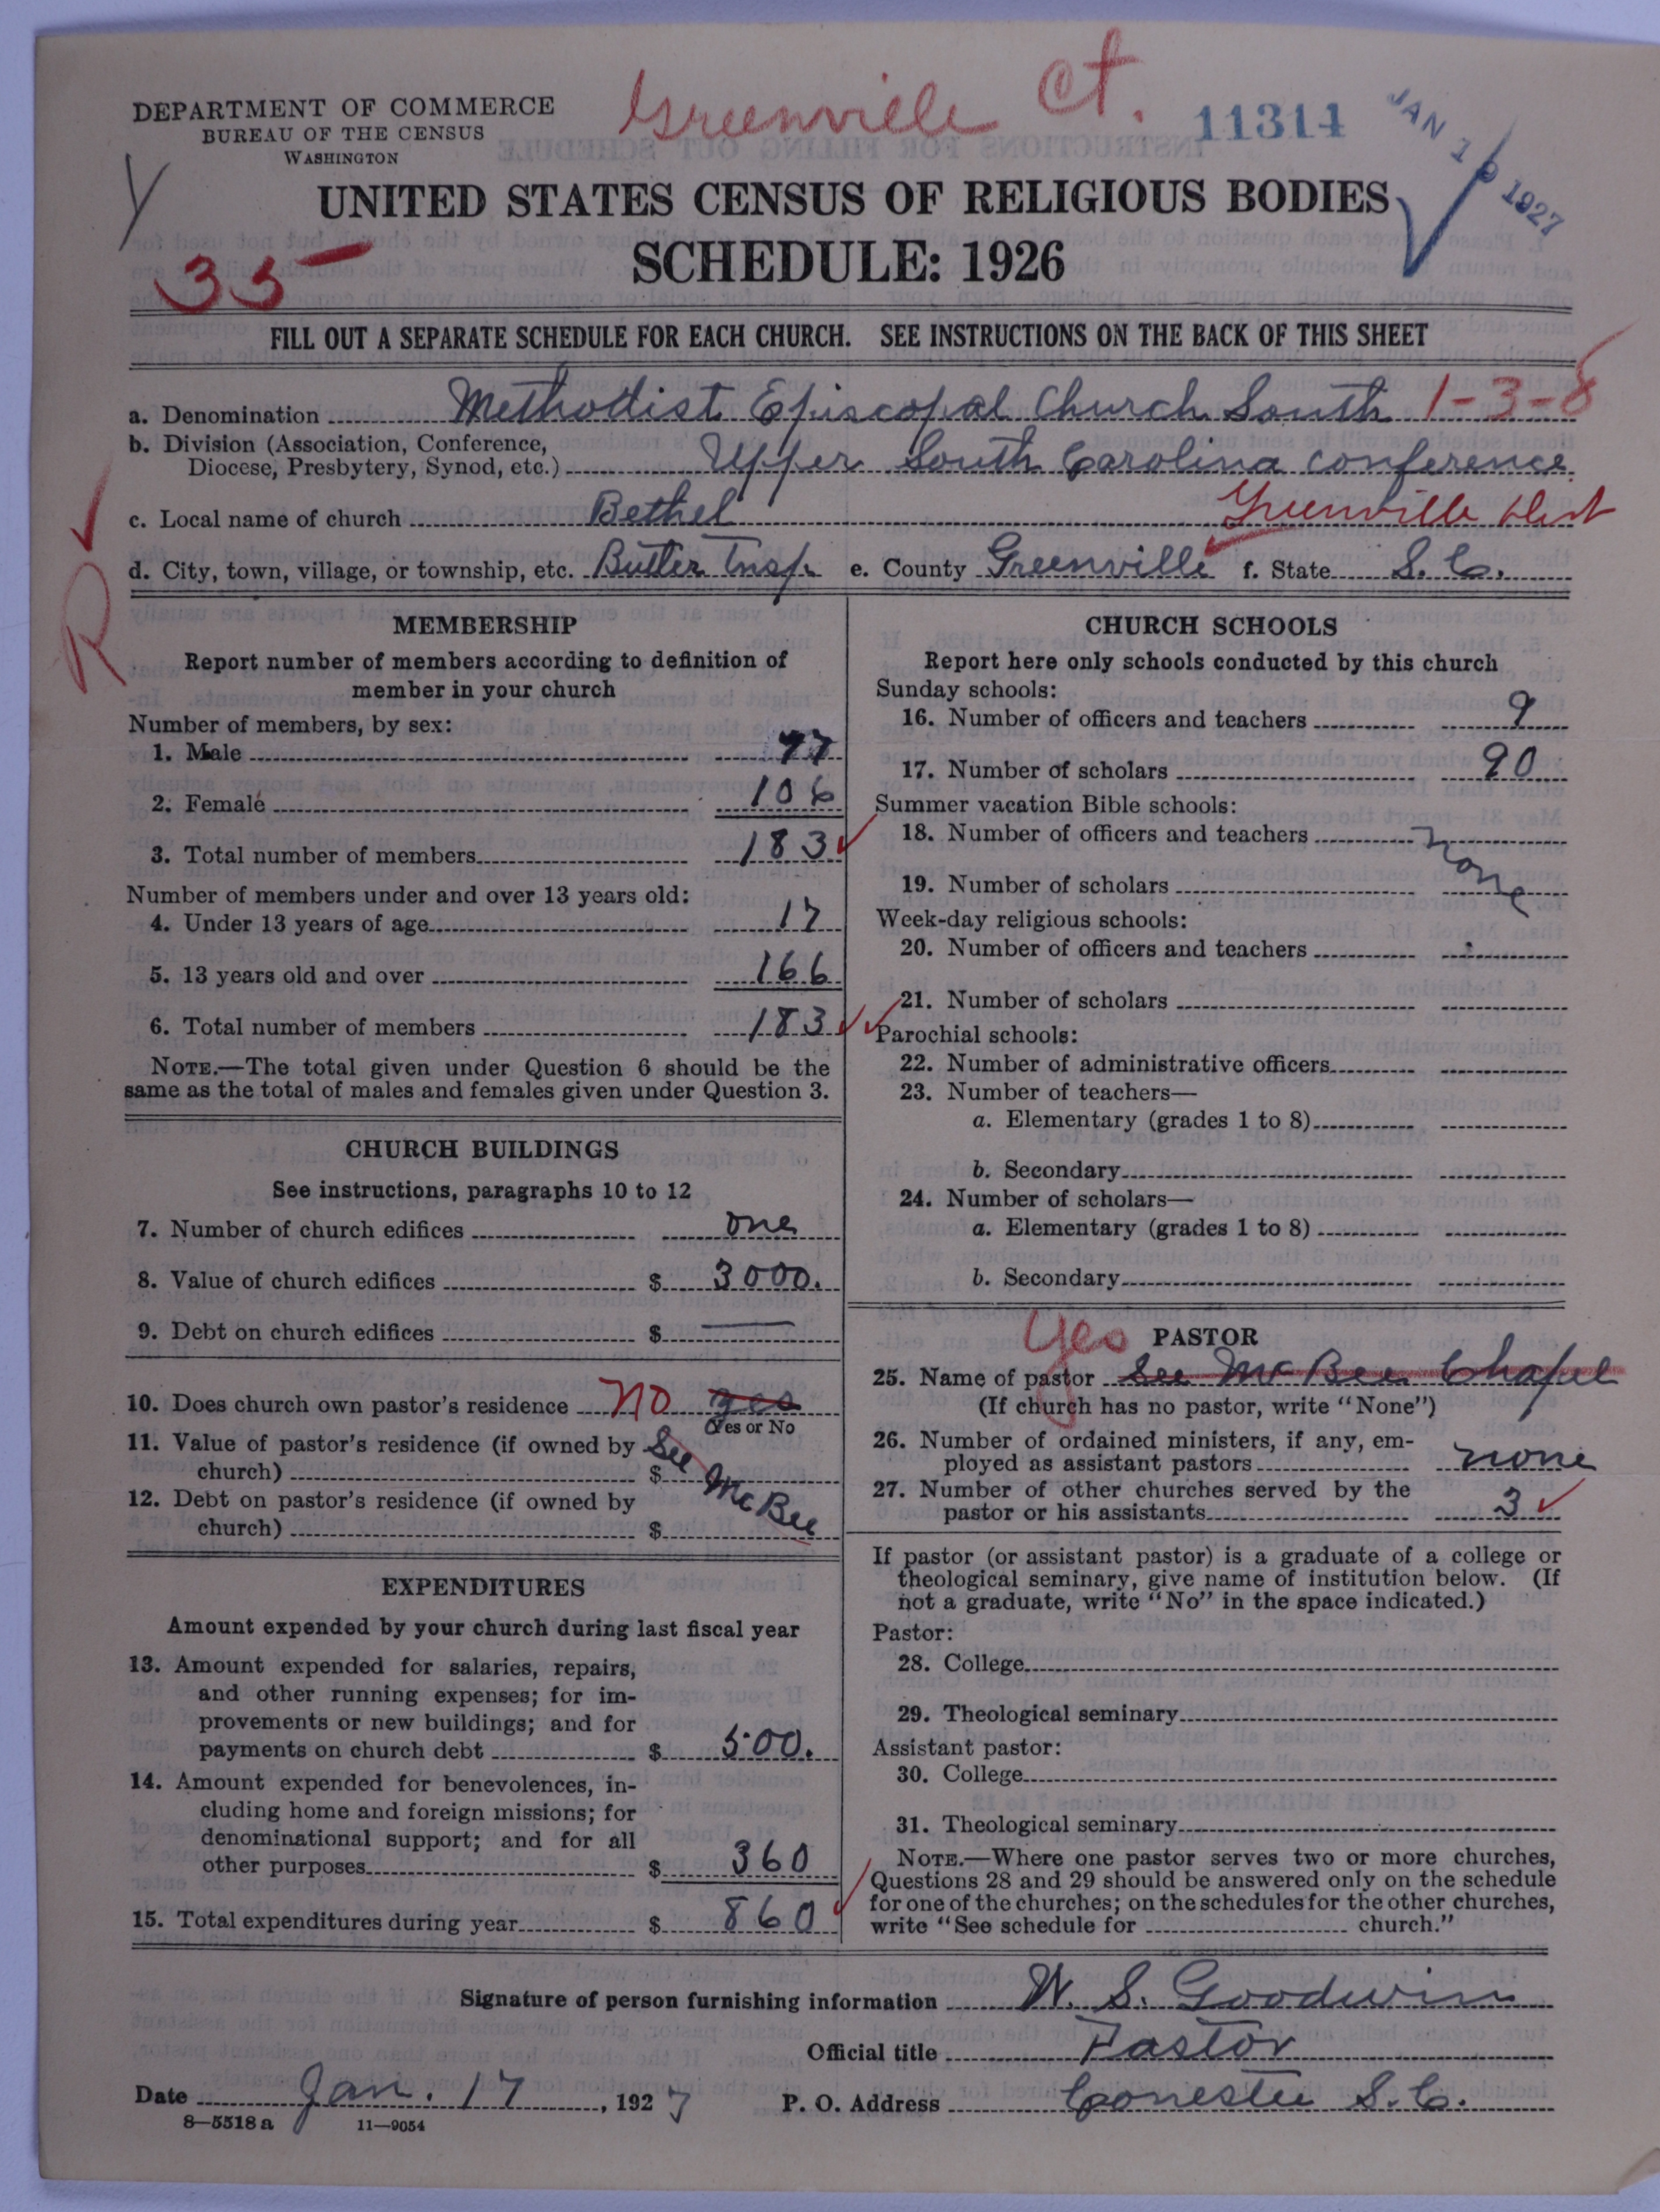 Greenville Ct.
11314
JAN 19 1927
DEPARTMENT OF COMMERCE
BUREAU OF THE CENSUS
WASHINGTON
UNITED STATES CENSUS OF RELIGIOUS BODIES
SCHEDULE: 1926
35
FILL OUT A SEPARATE SCHEDULE FOR EACH CHURCH. SEE INSTRUCTIONS ON THE BACK OF THIS SHEET
a. Denomination Methodist Episcopal Church South 1-3-8
b. Division (Association, Conference,
Diocese, Presbytery, Synod, etc.) Upper South Carolina Conference
c. Local name of church Bethel Greenville Dist
d. City, town, village, or township, etc. Butler Twsp. e. County Greenville f. State S. C.
R
MEMBERSHIP
Report number of members according to definition of
member in your church
Number of members, by sex:
1. Male 77
2. Female 106
3. Total number of members 183
Number of members under and over 13 years old:
4. Under 13 years of age 17
5. 13 years old and over 166
6. Total number of members 183
NOTE.—The total given under Question 6 should be the
same as the total of males and females given under Question 3.
CHURCH BUILDINGS
See instructions, paragraphs 10 to 12
7. Number of church edifices one
8. Value of church edifices $ 3000.
9. Debt on church edifices $ —
10. Does church own pastor's residence No yes
(Yes or No
11. Value of pastor's residence (if owned by
church) $ See McBee
12. Debt on pastor's residence (if owned by
church) $
EXPENDITURES
Amount expended by your church during last fiscal year
13. Amount expended for salaries, repairs,
and other running expenses; for im-
provements or new buildings; and for
payments on church debt $ 500.
14. Amount expended for benevolences, in-
cluding home and foreign missions; for
denominational support; and for all
other purposes $ 360
15. Total expenditures during year $ 860
CHURCH SCHOOLS
Report here only schools conducted by this church
Sunday schools:
16. Number of officers and teachers 9
17. Number of scholars 90
Summer vacation Bible schools:
18. Number of officers and teachers none
19. Number of scholars
Week-day religious schools:
20. Number of officers and teachers
21. Number of scholars
Parochial schools:
22. Number of administrative officers
23. Number of teachers—
a. Elementary (grades 1 to 8)
b. Secondary
24. Number of scholars—
a. Elementary (grades 1 to 8)
b. Secondary
yes PASTOR
25. Name of pastor See McBee Chapel
(If church has no pastor, write "None")
26. Number of ordained ministers, if any, em-
ployed as assistant pastors none
27. Number of other churches served by the
pastor or his assistants 3
If pastor (or assistant pastor) is a graduate of a college or
theological seminary, give name of institution below. (If
not a graduate, write "No" in the space indicated.)
Pastor:
28. College
29. Theological seminary
Assistant pastor:
30. College
31. Theological seminary
NOTE.—Where one pastor serves two or more churches,
Questions 28 and 29 should be answered only on the schedule
for one of the churches; on the schedules for the other churches,
write "See schedule for church."
Signature of person furnishing information W. S. Goodwin
Official title Pastor
Date Jan. 17, 1927 P. O. Address Conestee S. C.
8—5518 a 11—9054